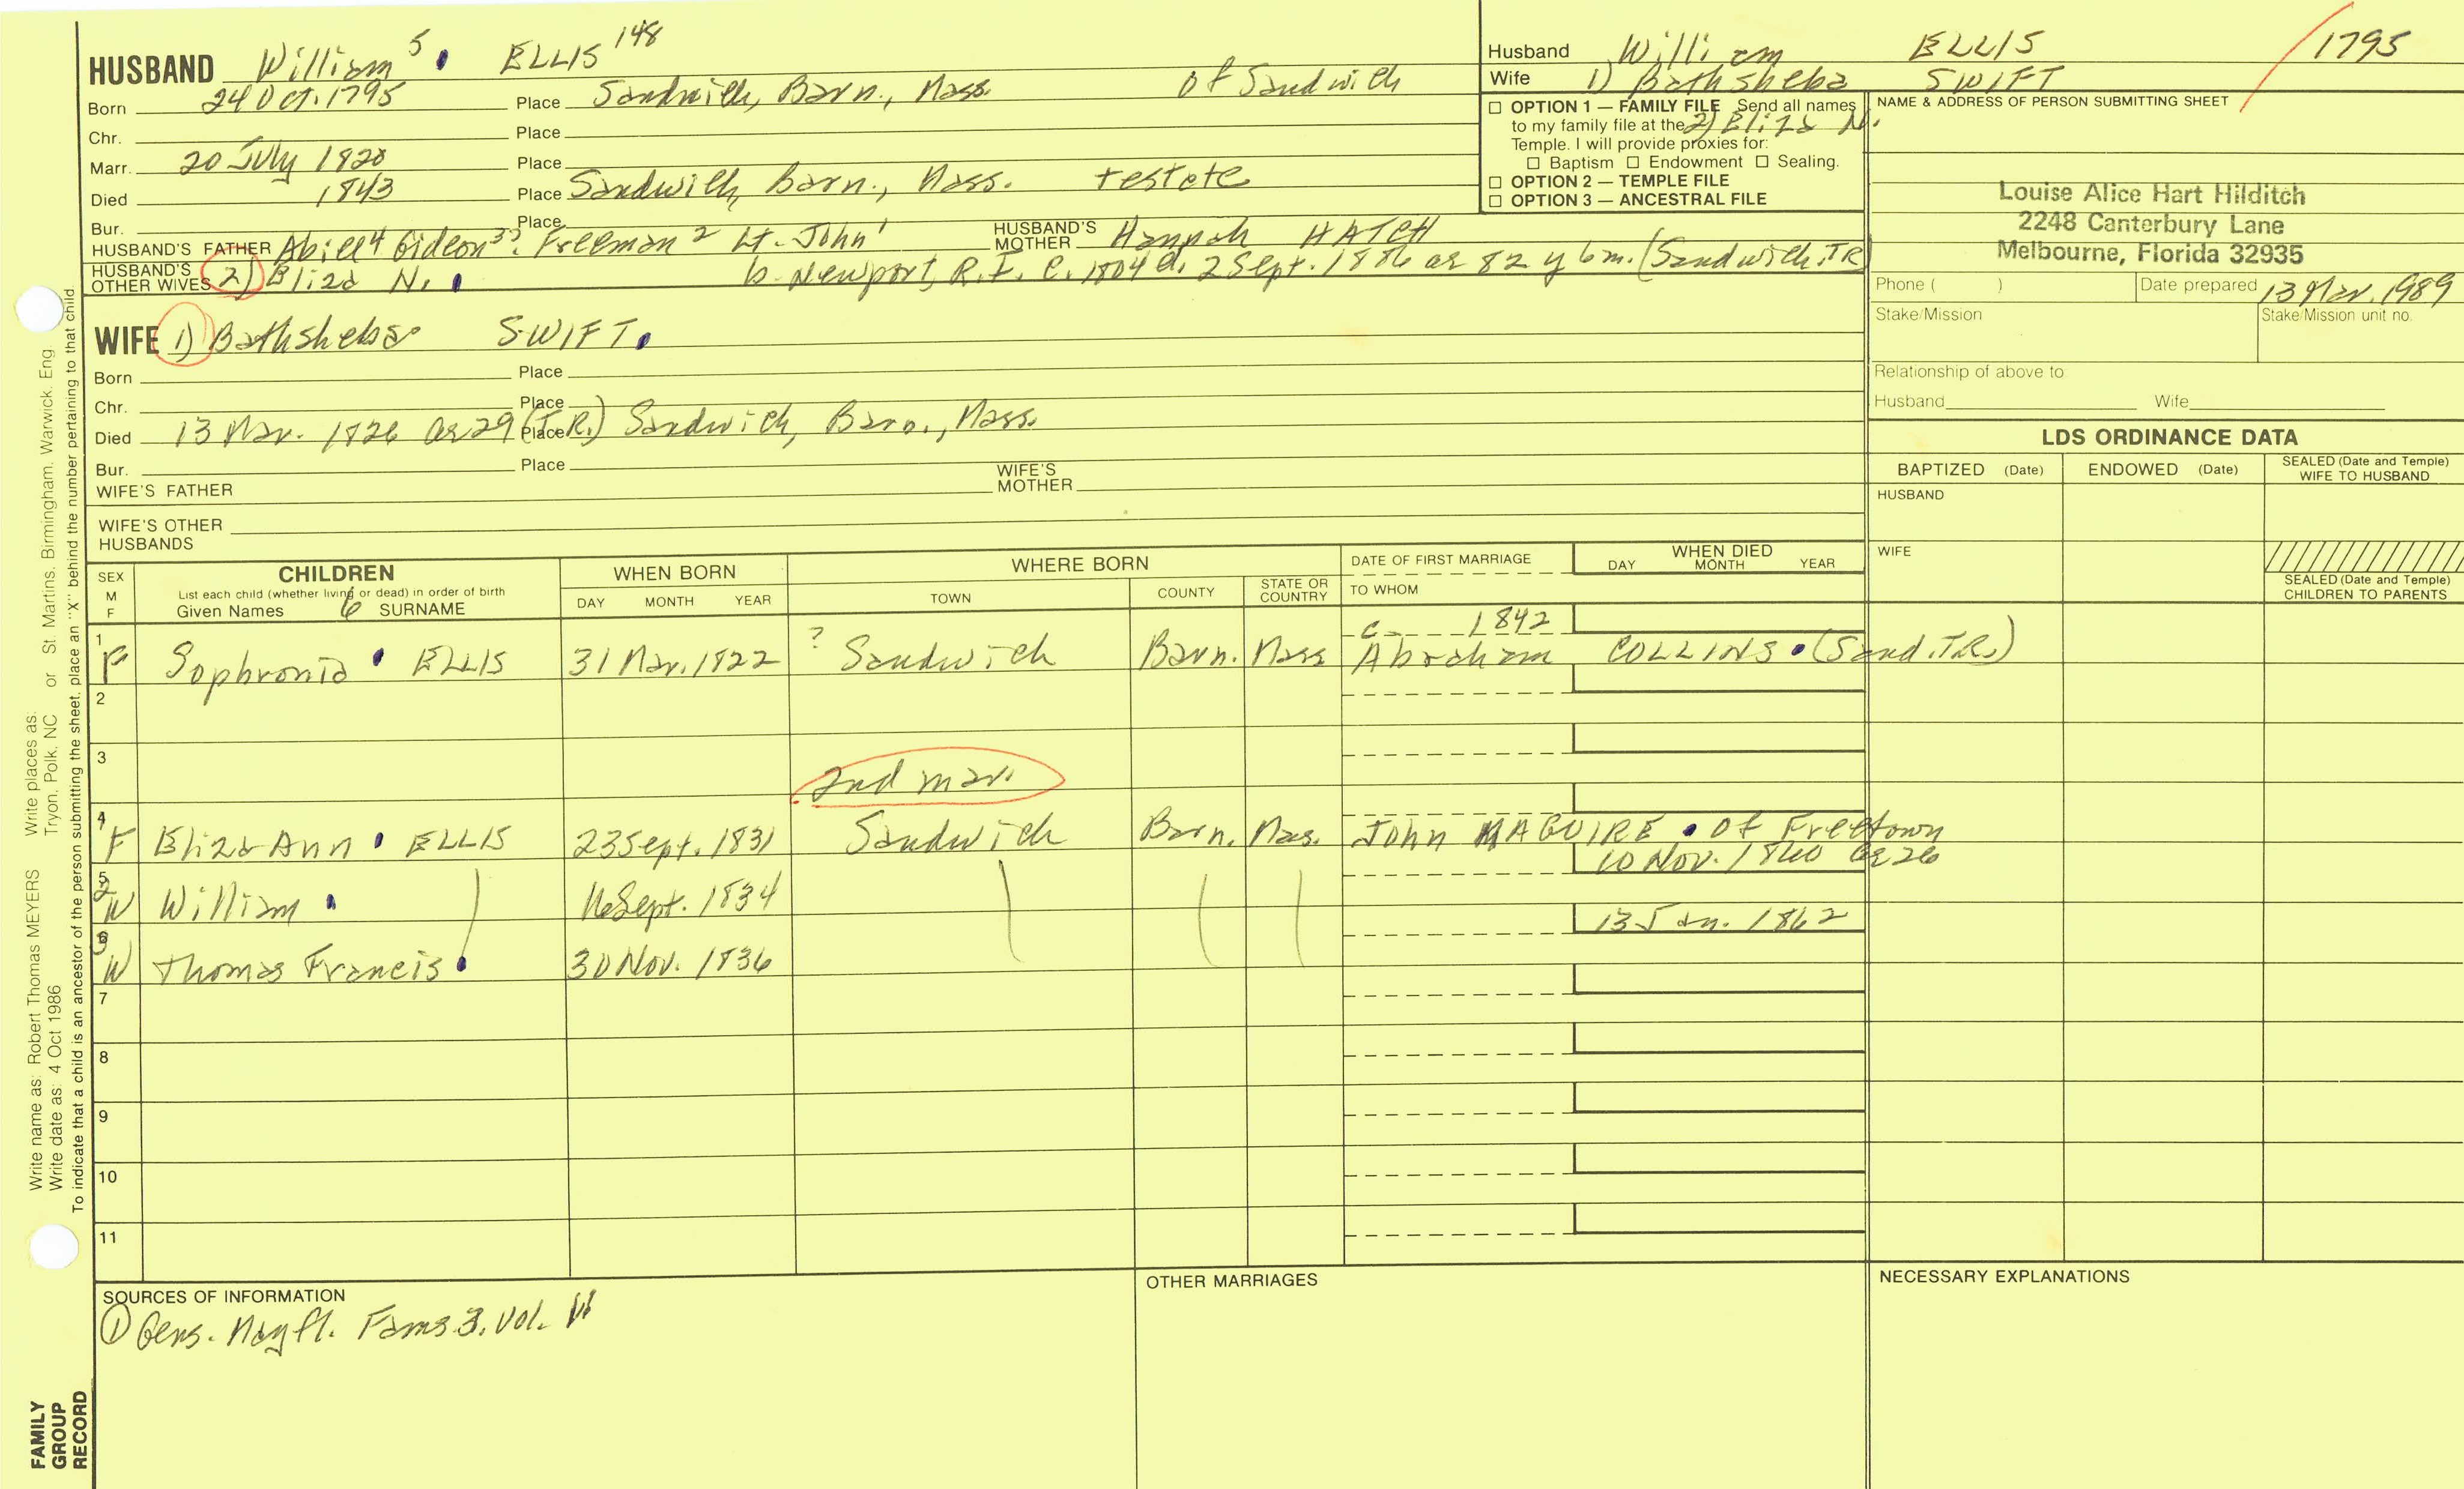 HUSBAND William 5 ELLIS 148
Born 24 Oct. 1795 Place Sandwich, Barn., Mass. of Sandwich
Chr. Place
Marr. 20 July 1820 Place
Died 1843 Place Sandwich, Barn., Mass. testate
Bur. Place
HUSBAND'S FATHER Abiel 4 Gideon 3? Freeman 2 Lt. John 1 HUSBAND'S MOTHER Hannah HATCH
HUSBAND'S OTHER WIVES 2) Eliza N. b. Newport, R.I. c. 1804 d. 2 Sept. 1886 ae 82 y 6 m. (Sandwich, TR)
WIFE 1) Bathsheba SWIFT.
Born Place
Chr. Place
Died 13 Mar. 1826 ae 29 (T.R.) Place Sandwich, Barn., Mass.
Bur. Place
WIFE'S FATHER WIFE'S MOTHER
WIFE'S OTHER HUSBANDS
Husband William ELLIS 1795
Wife 1) Bathsheba SWIFT
2) Eliza N.
☐ OPTION 1 — FAMILY FILE Send all names
to my family file at the
Temple. I will provide proxies for:
☐ Baptism ☐ Endowment ☐ Sealing.
☐ OPTION 2 — TEMPLE FILE
☐ OPTION 3 — ANCESTRAL FILE
NAME & ADDRESS OF PERSON SUBMITTING SHEET
Louise Alice Hart Hilditch
2248 Canterbury Lane
Melbourne, Florida 32935
Phone ( ) Date prepared 13 Mar. 1989
Stake/Mission Stake/Mission unit no.
Relationship of above to
Husband Wife
LDS ORDINANCE DATA
BAPTIZED (Date) ENDOWED (Date) SEALED (Date and Temple) WIFE TO HUSBAND
HUSBAND
WIFE
SEALED (Date and Temple) CHILDREN TO PARENTS
SEX M F
CHILDREN
List each child (whether living or dead) in order of birth
Given Names 6 SURNAME
WHEN BORN
DAY MONTH YEAR
WHERE BORN
TOWN COUNTY STATE OR COUNTRY
DATE OF FIRST MARRIAGE
TO WHOM
WHEN DIED
DAY MONTH YEAR
c. 1842
1 F Sophronia ELLIS 31 Mar. 1822 ? Sandwich Barn. Mass Abraham COLLINS (Sand. T.R.)
2
3
2nd mar.
4 1 F Eliza Ann ELLIS 23 Sept. 1831 Sandwich Barn. Mas. John MAGUIRE of Freetown
10 Nov. 1860 ae 26
5 2 M William 16 Sept. 1834
13 Jan. 1862
6 3 M Thomas Francis 30 Nov. 1836
7
8
9
10
11
SOURCES OF INFORMATION
① Gens. Mayfl. Fams. 3. Vol.
OTHER MARRIAGES
NECESSARY EXPLANATIONS
Write name as: Robert Thomas MEYERS Write places as:
Write date as: 4 Oct 1986 Tryon, Polk, NC or St. Martins, Birmingham, Warwick, Eng
To indicate that a child is an ancestor of the person submitting the sheet, place an "X" behind the number pertaining to that child.
FAMILY
GROUP
RECORD